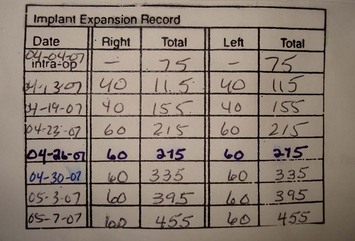 Implant Expansion Record
Date Right Total Left Total
04-04-07
intra-op - 75 - 75
4-13-07 40 115 40 115
4-19-07 40 155 40 155
04-23-07 60 215 60 215
04-26-07 60 275 60 275
04-30-07 60 335 60 335
05-3-07 60 395 60 395
05-7-07 60 455 60 455